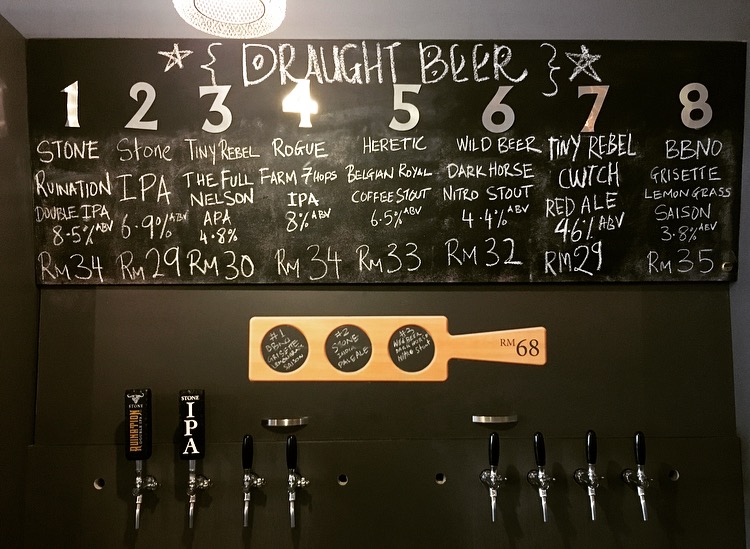 { DRAUGHT BEER }
1
STONE
RUINATION
DOUBLE IPA
8.5% ABV
RM 34
2
Stone
IPA
6.9% ABV
RM 29
3
TINY REBEL
THE FULL
NELSON
APA
4.8%
RM 30
4
ROGUE
FARM 7 HOPS
IPA
8% ABV
RM 34
5
HERETIC
BELGIAN ROYAL
COFFEE STOUT
6.5% ABV
RM 33
6
WILD BEER
DARK HORSE
NITRO STOUT
4.4% ABV
RM 32
7
TINY REBEL
CWTCH
RED ALE
4.6% ABV
RM 29
8
BBNO
GRISETTE
LEMONGRASS
SAISON
3.8% ABV
RM 35
#1
BBNO
GRISETTE
LEMONGRASS
SAISON
#2
STONE
INDIA
PALE ALE
#3
WILD BEER
DARK HORSE
NITRO STOUT
RM 68
STONE
RUINATION
DOUBLE IPA
STONE
IPA